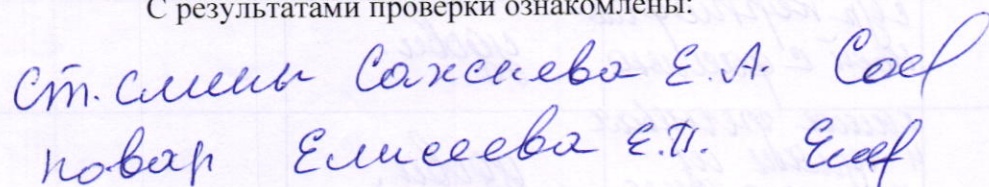 С результатами проверки ознакомлены:
Ст. смены Сажнева Е.А.
повар Елисеева Е.П.